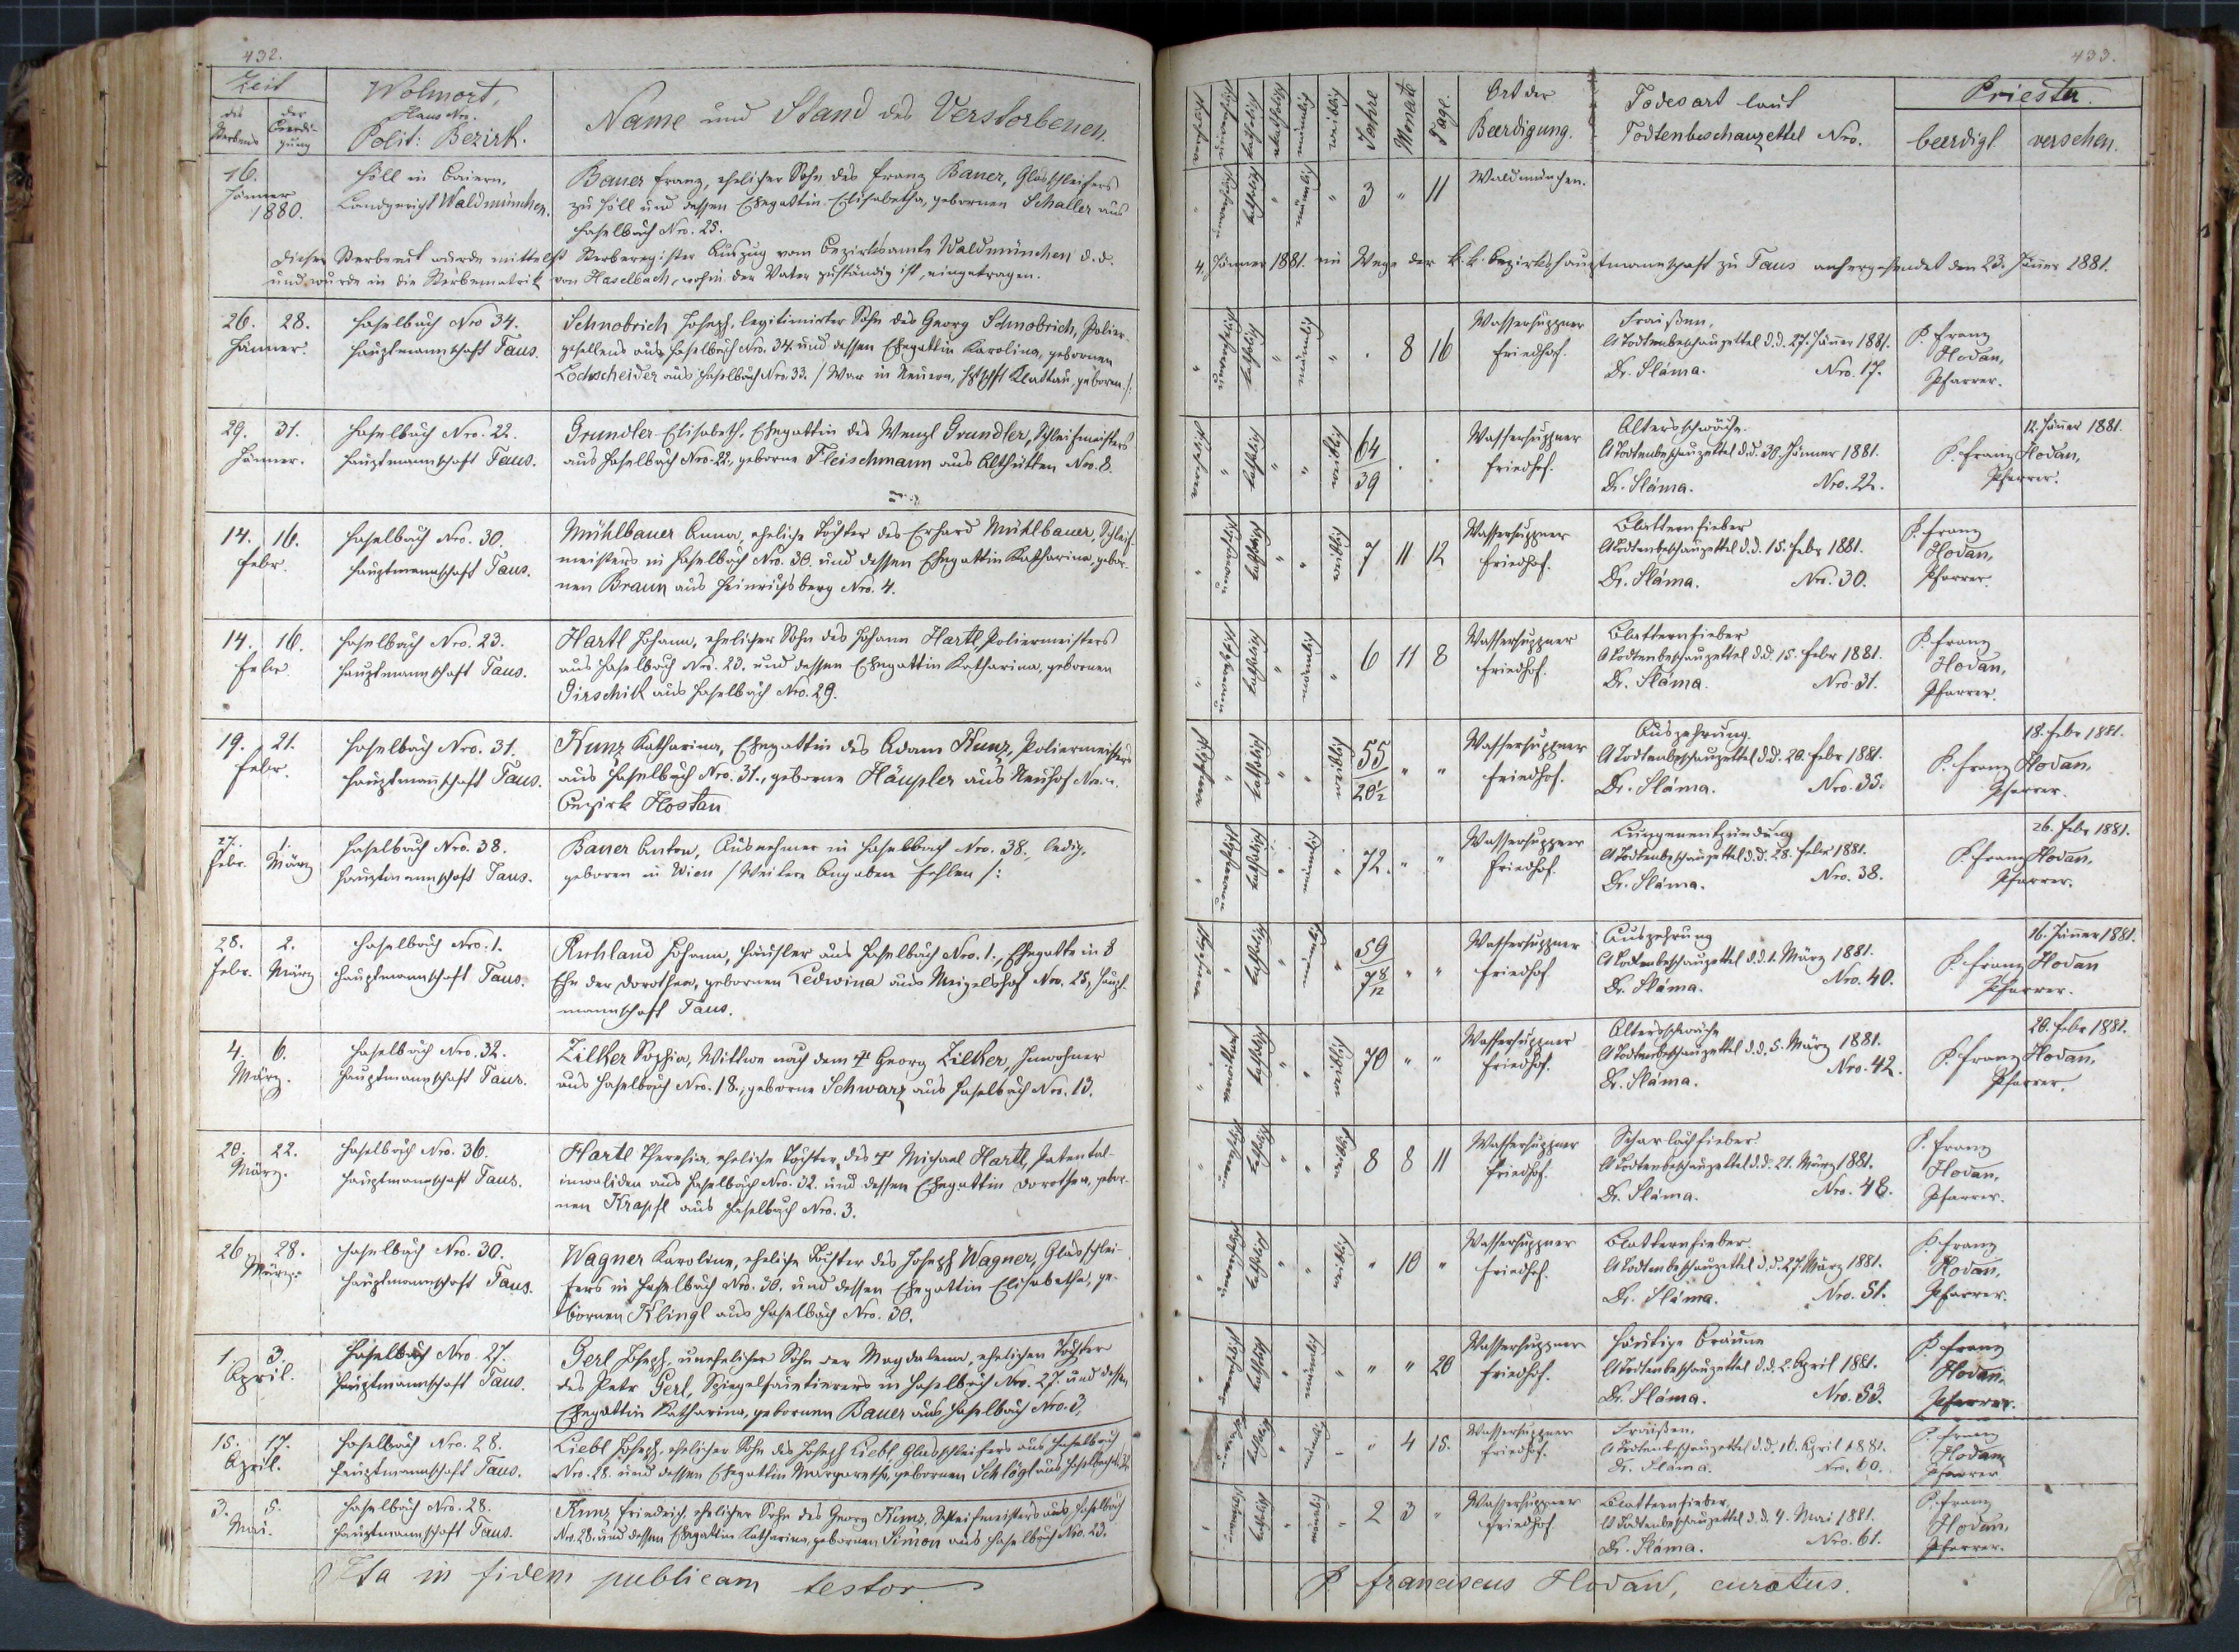 432.
Zeit
des Sterbens
der Beerdigung
Wohnort,
Haus Nro.
Polit: Bezirk.
Name und Stand des Verstorbenen.
16.
Jänner
1880.
Höll in Baiern,
Landgericht Waldmünchen.
Bauer Franz, ehelicher Sohn des Franz Bauer, Glasschleifers
zu Höll und dessen Ehegattin Elisabetha, gebornen Schaller aus
Haselbach Nro. 25.
Dieser Sterbeakt wurde mittelst Sterberegister Auszug vom Bezirksamte Waldmünchen d. d.
und wurde in die Sterbematrik von Haselbach, wohin der Vater zuständig ist, eingetragen.
26. 28.
Jänner.
Haselbach Nro 34.
Hauptmannschaft Taus.
Schnobrich Joseph, legitimirter Sohn des Georg Schnobrich, Polier-
gesellens aus Haselbach Nro. 34. und dessen Ehegattin Karolina, gebornen
Lochscheider aus Haselbach Nro. 33. / War in Neuern, Hptschft Klattau, geboren. /:
29. 31.
Jänner.
Haselbach Nro. 22.
Hauptmannschaft Taus.
Grundler Elisabeth, Ehegattin des Wenzl Grundler, Schleifmeisters
aus Haselbach Nro. 22., geborne Fleischmann aus Althütten Nro. 8.
14. 16.
Febr.
Haselbach Nro. 30.
Hauptmannschaft Taus.
Mühlbauer Anna, eheliche Tochter des Erhard Mühlbauer, Schleif-
meisters in Haselbach Nro. 30. und dessen Ehegattin Katharina, gebor-
nen Braun aus Heinrichsberg Nro. 4.
14. 16.
Febr.
Haselbach Nro. 23.
Hauptmannschaft Taus.
Hartl Johann, ehelicher Sohn des Johann Hartl, Poliermeisters
aus Haselbach Nro. 23. und dessen Ehegattin Katharina, gebornen
Dirschik aus Haselbach Nro. 29.
19. 21.
Febr.
Haselbach Nro. 31.
Hauptmannschaft Taus.
Kunz Katharina, Ehegattin des Adam Kunz, Poliermeisters
aus Haselbach Nro. 31., geborne Häupler aus Neuhof
Bezirk Hostau
27. Febr.
1. März
Haselbach Nro. 38.
Hauptmannschaft Taus.
Bauer Anton, Ausnehmer in Haselbach Nro. 38., ledig,
geboren in Wien / Weitere Angaben fehlen /:
28. Febr.
2. März
Haselbach Nro. 1.
Hauptmannschaft Taus.
Ruhland Johann, Häusler aus Haselbach Nro. 1., Ehegatte in
Ehe der Dorothea, gebornen Tedwina aus Meigelshof Nro. 25, Haupt-
mannschaft Taus.
4. 6.
März.
Haselbach Nro. 32.
Hauptmannschaft Taus.
Zilker Sophia, Wittwe nach dem † Georg Zilker, Inwohner
aus Haselbach Nro. 18., geborne Schwarz aus Haselbach Nro. 13.
20. 22.
März.
Haselbach Nro. 36.
Hauptmannschaft Taus.
Hartl Theresia, eheliche Tochter des † Michael Hartl, Patental-
invaliden aus Haselbach Nro. 32. und dessen Ehegattin Dorothea, gebor-
nen Krapfl aus Haselbach Nro. 3.
26. 28.
März.
Haselbach Nro. 30.
Hauptmannschaft Taus.
Wagner Karolina, eheliche Tochter des Joseph Wagner, Glasschlei-
fers in Haselbach Nro. 30. und dessen Ehegattin Elisabetha, ge-
bornen Klingl aus Haselbach Nro. 30.
1. 3.
April.
Haselbach Nro. 27.
Hauptmannschaft Taus.
Gerl Joseph, unehelicher Sohn der Magdalena, ehelichen Tochter
des Peter Gerl, in Haselbach Nro. 27. und dessen
Ehegattin Katharina, gebornen Bauer aus Haselbach Nro. 3.
15. 17.
April.
Haselbach Nro. 28.
Hauptmannschaft Taus.
Liebl Joseph, ehelicher Sohn des Joseph Liebl, Glasschleifers aus Haselbach
Nro. 28. und dessen Ehegattin Margaretha, gebornen Schlögl aus Haselbach
3. 5.
Mai.
Haselbach Nro. 28.
Hauptmannschaft Taus.
Kunz Friedrich, ehelicher Sohn des Georg Kunz, Schleifmeisters aus Haselbach
Nro. 28. und dessen Ehegattin Katharina, gebornen Simon aus Haselbach Nro. 23.
Ita in fidem publicam testor
433.
katholisch
männlich
weiblich
Jahre
Monate
Tage
Ort der
Beerdigung.
Todesart laut
Todtenbeschauzettel Nro.
Priester.
beerdigt
versehen.
katholisch " männlich " 3 " 11
Waldmünchen.
4. Jänner 1881. im Wege der k. k. Bezirkshauptmannschaft zu Taus anhergesendet den 23. Jänner 1881.
katholisch " männlich " . 8 16
Wassersuppner
Friedhof.
Fraißen,
lt Todtenbeschauzettel d. d. 27. Jänner 1881.
Dr. Sláma. Nro. 17.
P. Franz
Hodan,
Pfarrer.
katholisch " " weiblich 64/39 . .
Wassersuppner
Friedhof.
Altersschwäche.
lt Todtenbeschauzettel d. d. 30. Jänner 1881.
Dr. Sláma. Nro. 22.
12. Jänner 1881.
P. Franz Hodan,
Pfarrer.
katholisch " " weiblich 7 11 12
Wassersuppner
Friedhof.
Blatternfieber
lt Todtenbeschauzettel d. d. 15. Febr 1881.
Dr. Sláma. Nro. 30.
P. Franz
Hodan,
Pfarrer.
katholisch " männlich " 6 11 8
Wassersuppner
Friedhof.
Blatternfieber
lt Todtenbeschauzettel d. d. 15. Febr 1881.
Dr. Sláma. Nro. 31.
P. Franz
Hodan,
Pfarrer.
katholisch " " weiblich 55/20½ " "
Wassersuppner
Friedhof.
Auszehrung.
lt Todtenbeschauzettel d. d. 20. Febr 1881.
Dr. Sláma. Nro. 35.
18. Febr 1881.
P. Franz Hodan,
Pfarrer.
katholisch " männlich " 72. " "
Wassersuppner
Friedhof.
Lungenentzündung
lt Todtenbeschauzettel d. d. 28. Febr 1881.
Dr. Sláma. Nro. 38.
26. Febr 1881.
P. Franz Hodan,
Pfarrer.
katholisch " männlich " 59/7 8/12 " "
Wassersuppner
Friedhof
Auszehrung
lt Todtenbeschauzettel d. d. 1. März 1881.
Dr. Sláma. Nro. 40.
16. Jänner 1881.
P. Franz Hodan
Pfarrer.
katholisch " " weiblich 70 " "
Wassersuppner
Friedhof.
Altersschwäche
lt Todtenbeschauzettel d. d. 5. März 1881.
Dr. Sláma. Nro. 42.
20. Febr 1881.
P. Franz Hodan,
Pfarrer.
katholisch " " weiblich 8 8 11
Wassersuppner
Friedhof.
Scharlachfieber
lt Todtenbeschauzettel d. d. 21. März 1881.
Dr. Sláma. Nro. 48.
P. Franz
Hodan,
Pfarrer.
katholisch " " weiblich " 10 "
Wassersuppner
Friedhof.
Blatternfieber
lt Todtenbeschauzettel d. d. 27. März 1881.
Dr. Sláma. Nro. 51.
P. Franz
Hodan,
Pfarrer.
katholisch " männlich " " " 20
Wassersuppner
Friedhof.
Häutige Bräune
lt Todtenbeschauzettel d. d. 2. April 1881.
Dr. Sláma. Nro. 53.
P. Franz
Hodan,
Pfarrer.
katholisch " männlich " " 4 15.
Wassersuppner
Friedhof.
Fraißen,
lt Todtenbeschauzettel d. d. 16. April 1881.
Dr. Sláma. Nro. 60.
P. Franz
Hodan,
Pfarrer
katholisch " männlich " 2 3 "
Wassersuppner
Friedhof.
Blatternfieber,
lt Todtenbeschauzettel d. d. 4. Mai 1881.
Dr. Sláma. Nro. 61.
P. Franz
Hodan,
Pfarrer.
P franciscus Hodan, curatus.